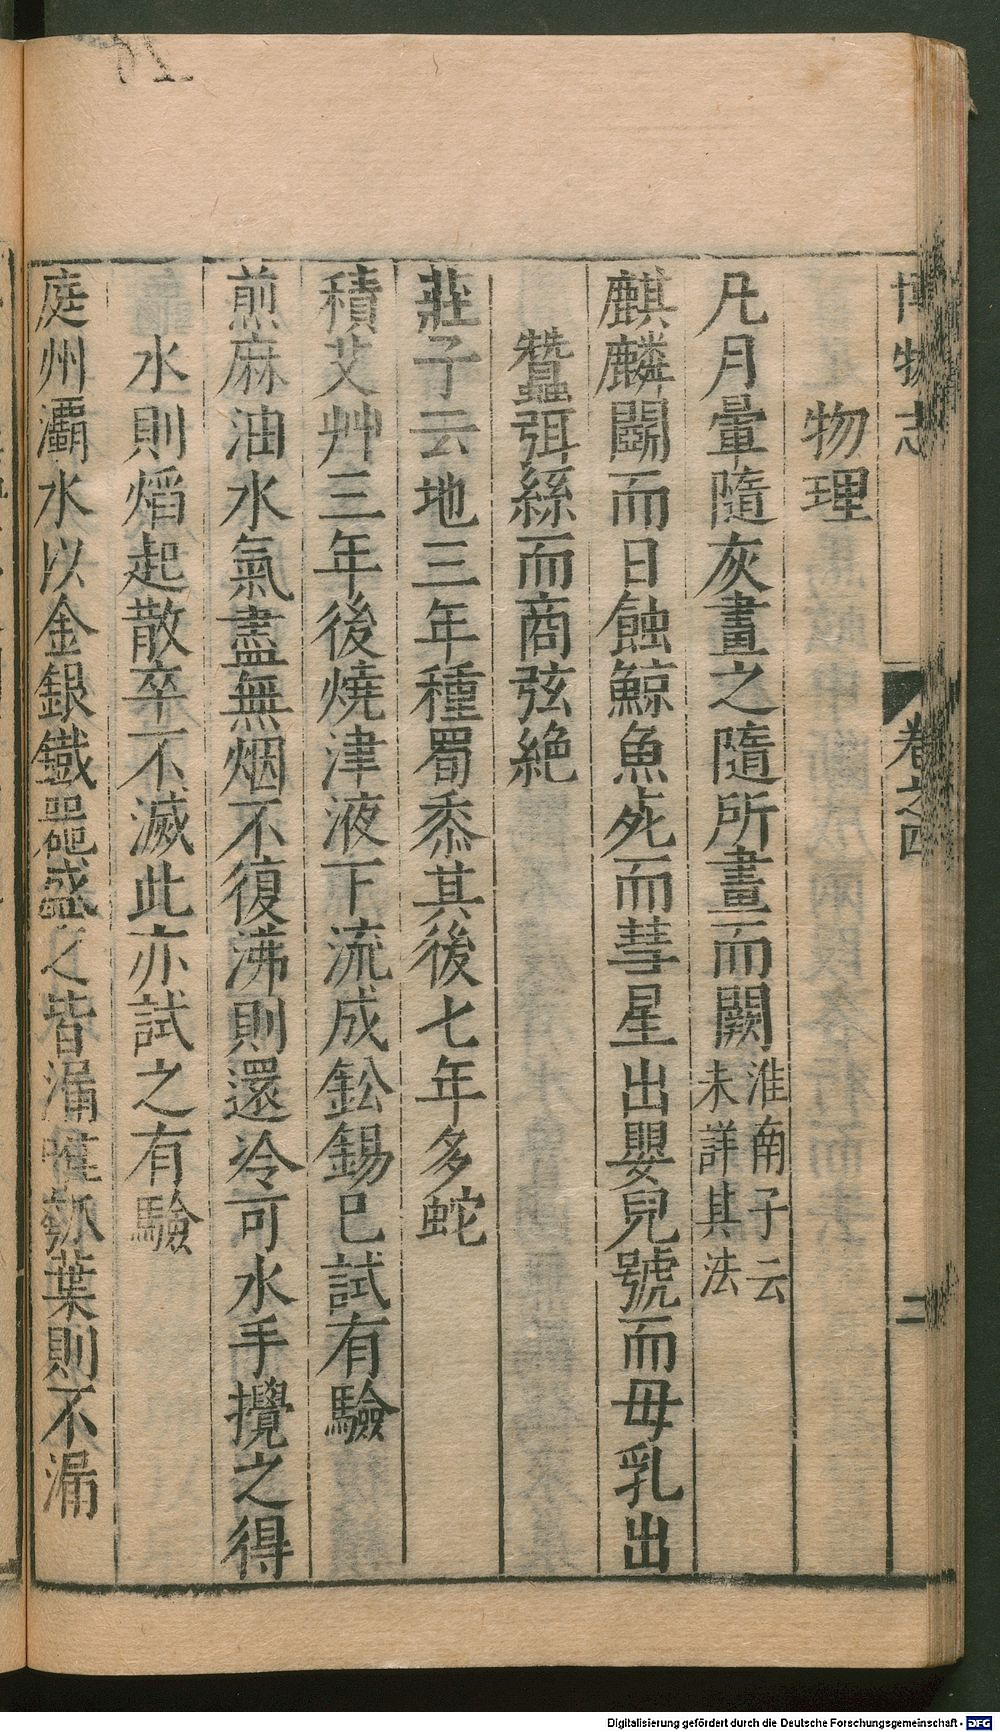 博物志 卷之四 二
物理
凡月暈隨灰畫之隨所畫而闕淮南子云未詳其法
麒麟鬭而日蝕鯨魚死而彗星出嬰兒號而母乳出
蠶弭絲而商弦絶
莊子云地三年種蜀黍其後七年多蛇
積艾艸三年後燒津液下流成鈆錫巳試有驗
煎麻油水氣盡無烟不復沸則還冷可水手攪之得
水則熖起散卒不滅此亦試之有驗
庭州灞水以金銀鐵器盛之皆漏惟瓠葉則不漏
Digitalisierung gefördert durch die Deutsche Forschungsgemeinschaft - DFG